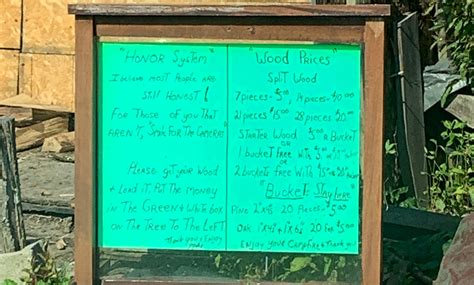 "Honor System"
I believe most People are
still Honest!
For Those of you that
Aren't, Smile For The Cameras
Please get your Wood
+ Load it, Put The money
in The Green + White box
on The Tree To The Left
Thank you + Enjoy
"Wood Prices"
Split Wood
7 pieces - $5.00, 14 pieces = $10.00
21 pieces $15.00 28 pieces $20.00
Starter Wood $5.00 a Bucket
OR
1 bucket free with $
OR
2 buckets free with $15
"Bucket Stays Here"
Pine 1"x4's 20 Pieces = $5.00
Oak 1"x4's + 1"x6's 20 for $5.00
Enjoy your Campfire + Thank you!